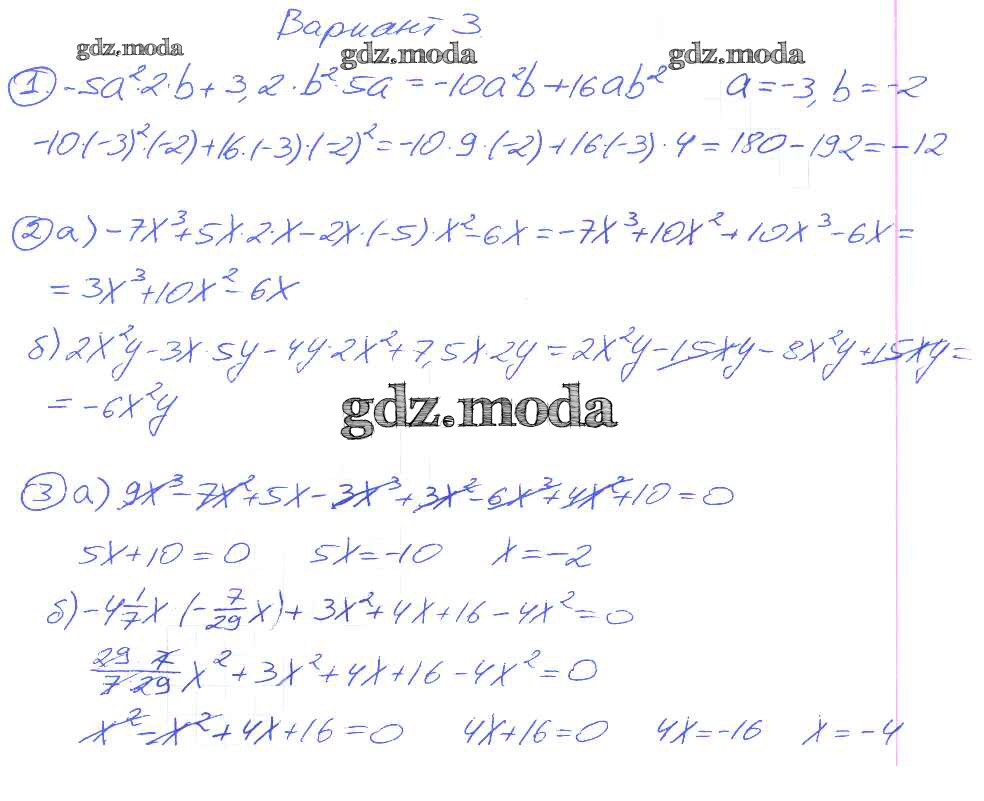 Вариант 3
gdz.moda gdz.moda gdz.moda
1) -5a²·2·b + 3,2·b²·5a = -10a²b + 16ab² a = -3, b = -2
-10·(-3)²·(-2) + 16·(-3)·(-2)² = -10·9·(-2) + 16·(-3)·4 = 180 - 192 = -12
2) а) -7x³ + 5x·2·x - 2x·(-5)·x² - 6x = -7x³ + 10x² + 10x³ - 6x =
= 3x³ + 10x² - 6x
б) 2x²y - 3x·5y - 4y·2x² + 7,5x·2y = 2x²y - 15xy - 8x²y + 15xy =
= -6x²y
gdz.moda
3) а) 9x³ - 7x² + 5x - 3x³ + 3x² - 6x³ + 4x² + 10 = 0
5x + 10 = 0 5x = -10 x = -2
б) -4 1/7 x·(-7/29 x) + 3x² + 4x + 16 - 4x² = 0
29·7/7·29 x² + 3x² + 4x + 16 - 4x² = 0
x² - x² + 4x + 16 = 0 4x + 16 = 0 4x = -16 x = -4